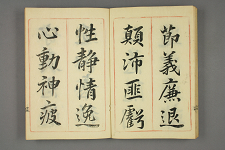 節義廉退
顛沛匪虧
性静情逸
心動神疲